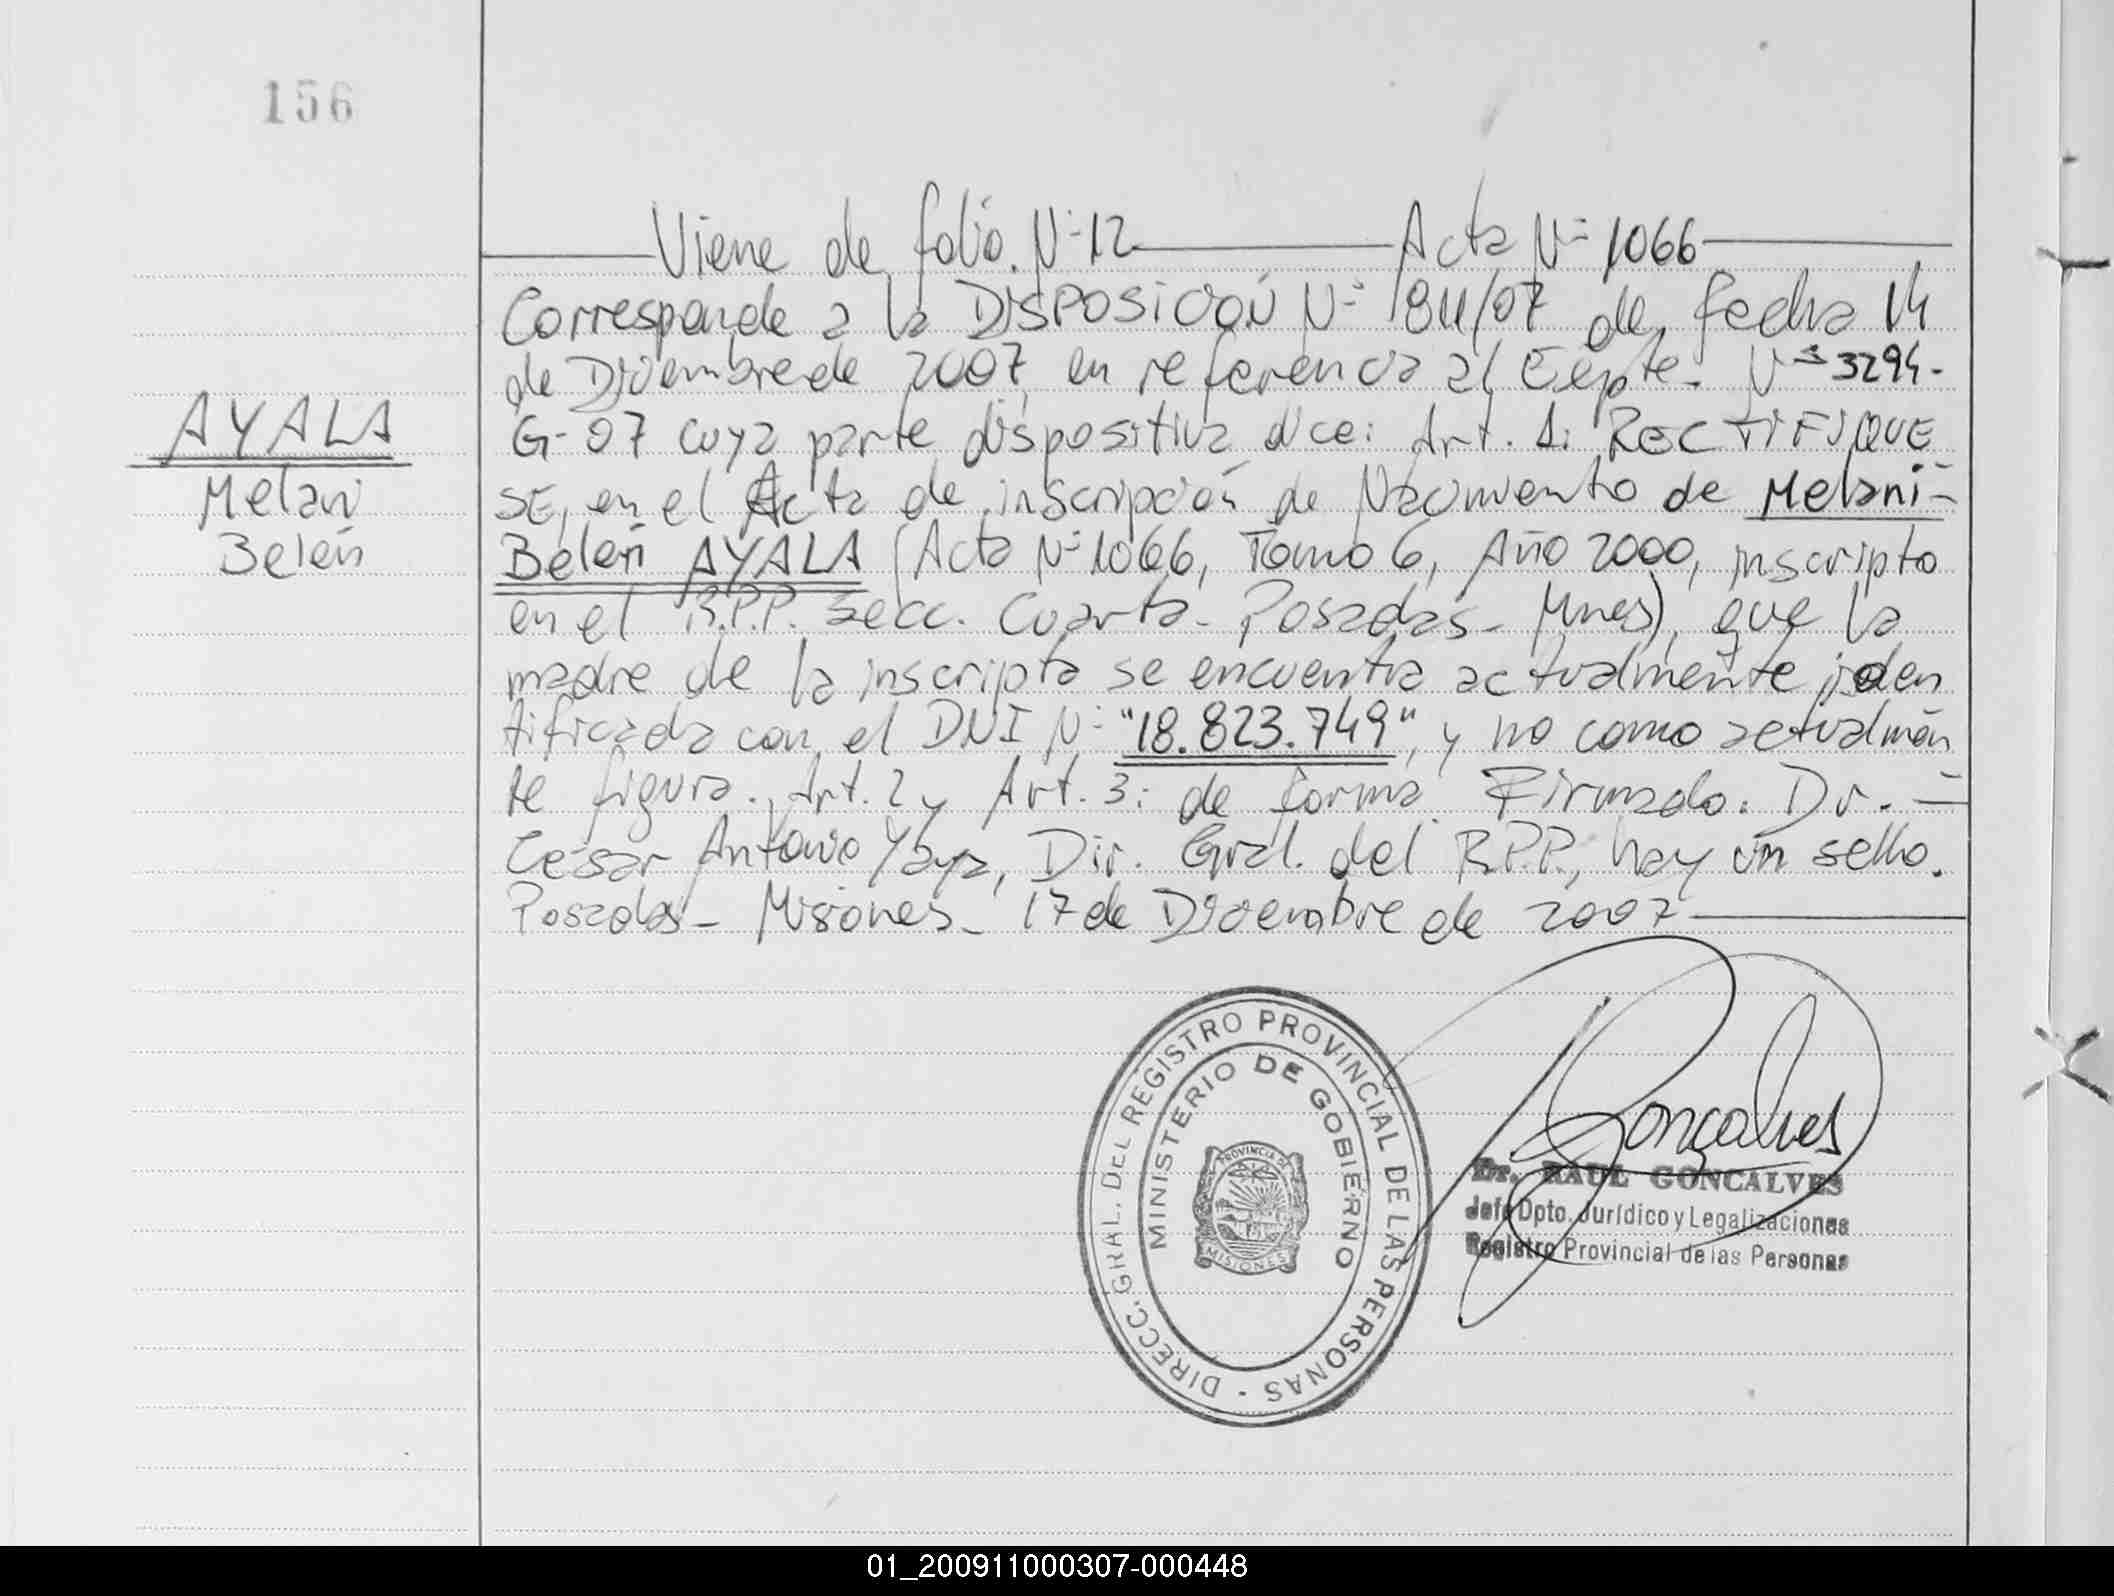 156
Viene de folio. Nº 12 Acta Nº 1066
Corresponde a la DISPOSICIÓN Nº 1811/07 de fecha 14
de Diciembre de 2007, en referencia al Expte. Nº 3294-
G-07 cuya parte dispositiva dice: Art. 1: RECTIFIQUE
SE, en el Acta de inscripción de Nacimiento de Melani-
Belén AYALA (Acta Nº 1066, Tomo 6, Año 2000, inscripto
en el R.P.P. Secc. Cuarta- Posadas- Mnes), que la
madre de la inscripta se encuentra actualmente iden
tificada con el DNI Nº "18.823.749", y no como actualmen
te figura. Art. 2 y Art. 3: de forma Firmado: Dr. -
César Antonio Yaya, Dir. Gral. del R.P.P., hay un sello.
Posadas- Misiones- 17 de Diciembre de 2007
AYALA
Melani
Belén
DIRECC. GRAL. DEL REGISTRO PROVINCIAL DE LAS PERSONAS -
MINISTERIO DE GOBIERNO
PROVINCIA DE
MISIONES
Gonçalves
Dr. RAUL GONCALVES
Jefe Dpto. Jurídico y Legalizaciones
Registro Provincial de las Personas
01_200911000307-000448